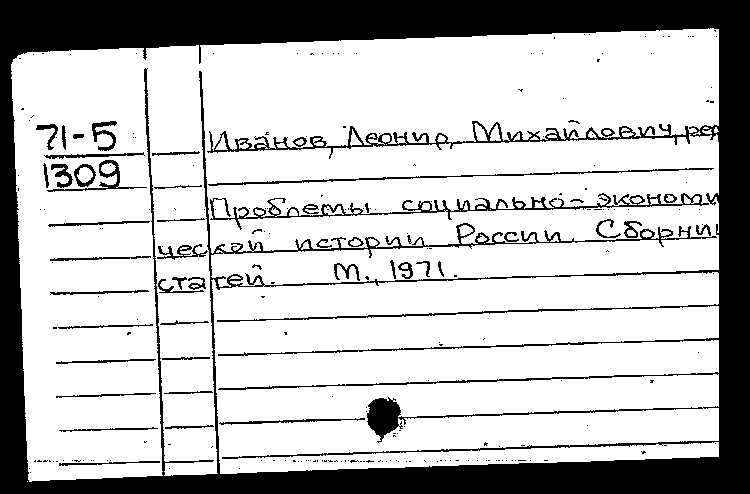 71-5
1309
Иванов, Леонид Михайлович, ред
Проблемы социально-экономи
ческой истории России. Сборни
статей. М., 1971.